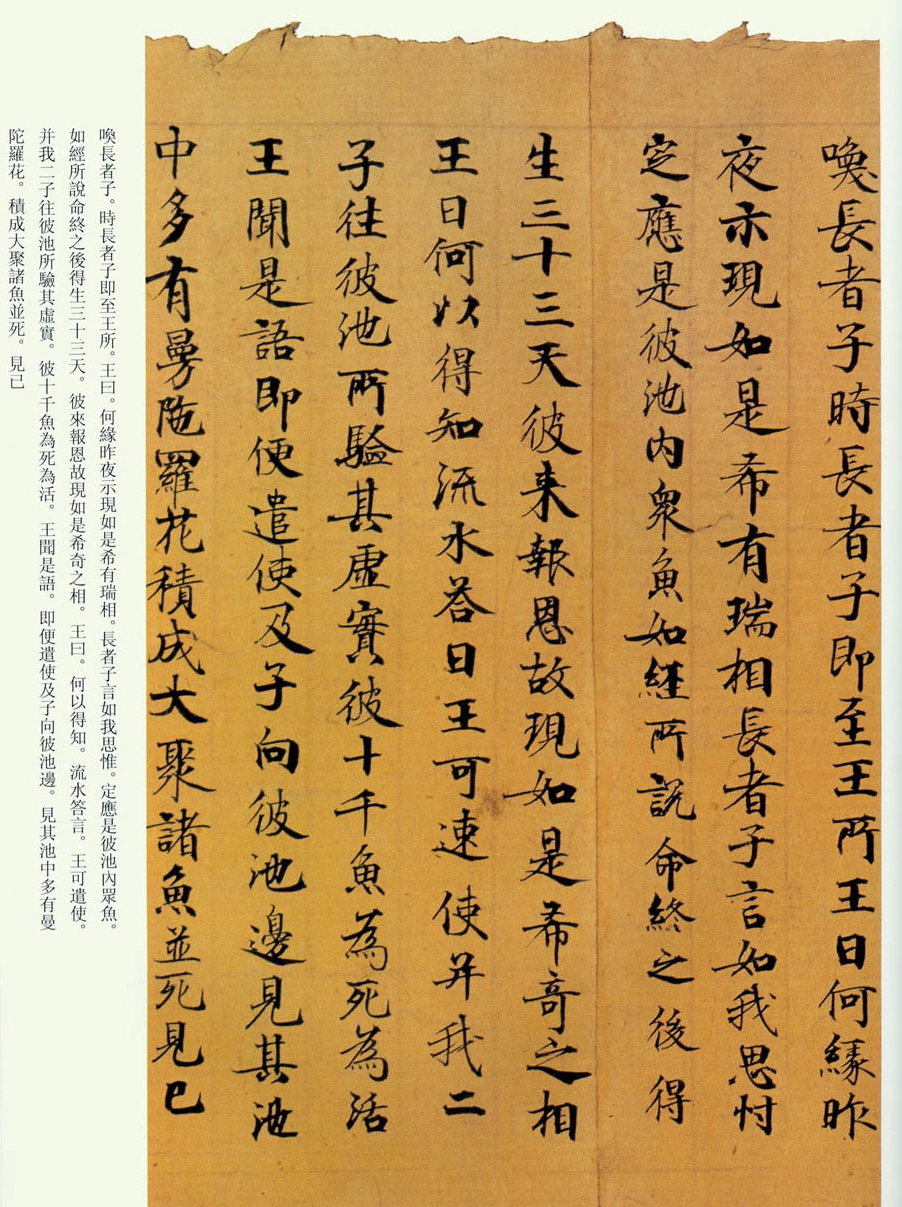 喚長者子時長者子即至王所王曰何緣昨
夜示現如是希有瑞相長者子言如我思忖
定應是彼池内衆魚如經所説命終之後得
生三十三天彼来報恩故現如是希奇之相
王曰何以得知流水荅曰王可速使并我二
子往彼池所驗其虛實彼十千魚為死為活
王聞是語即便遣使及子向彼池邊見其池
中多有曼陁羅花積成大聚諸魚並死見已
喚長者子。時長者子即至王所。王曰。何緣昨夜示現如是希有瑞相。長者子言如我思惟。定應是彼池內眾魚。
如經所說命終之後得生三十三天。彼來報恩故現如是希奇之相。王曰。何以得知。流水答言。王可遣使。
并我二子往彼池所驗其虛實。彼十千魚為死為活。王聞是語。即便遣使及子向彼池邊。見其池中多有曼
陀羅花。積成大聚諸魚並死。見已